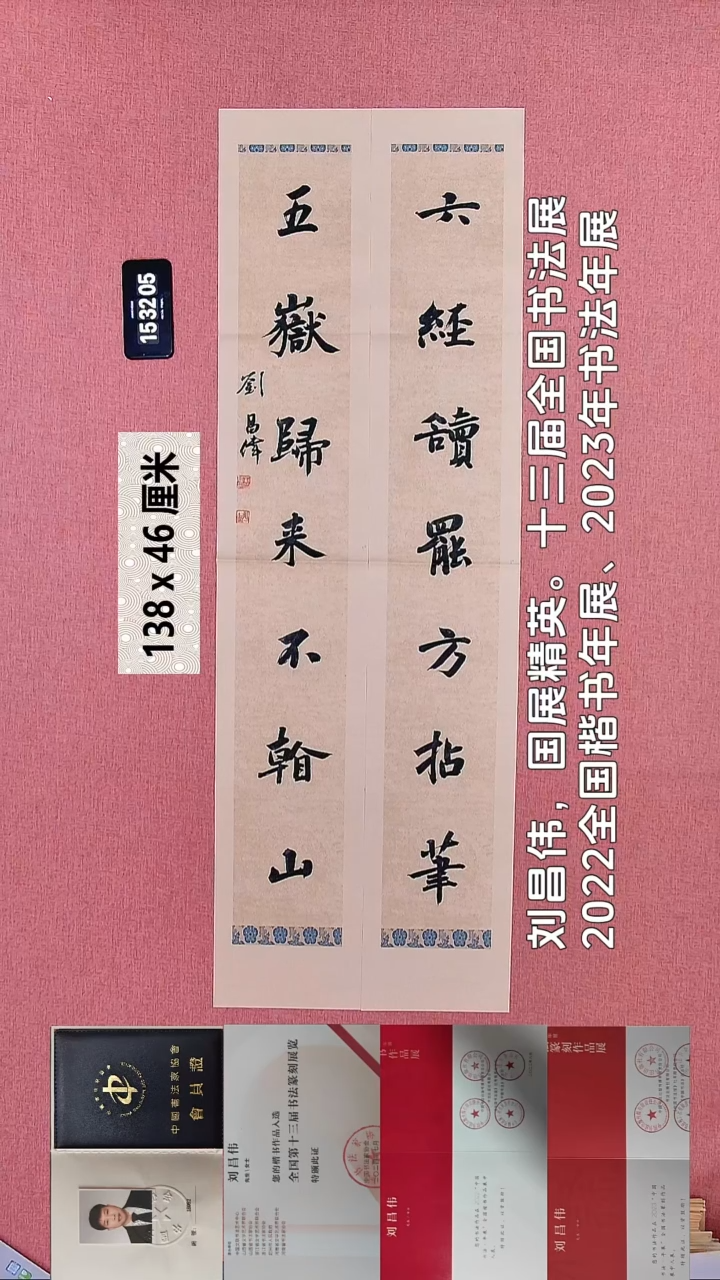 六經讀罷方拈筆
五嶽歸来不翰山
劉昌偉
153205
138 x 46 厘米
刘昌伟，国展精英。十三届全国书法展
2022全国楷书年展、2023年书法年展
中國書法家協會
會員證
刘昌伟
您的楷书作品入选
全国第十三届书法篆刻展览
特颁此证
刘昌伟
作品展
刘昌伟
篆刻作品展